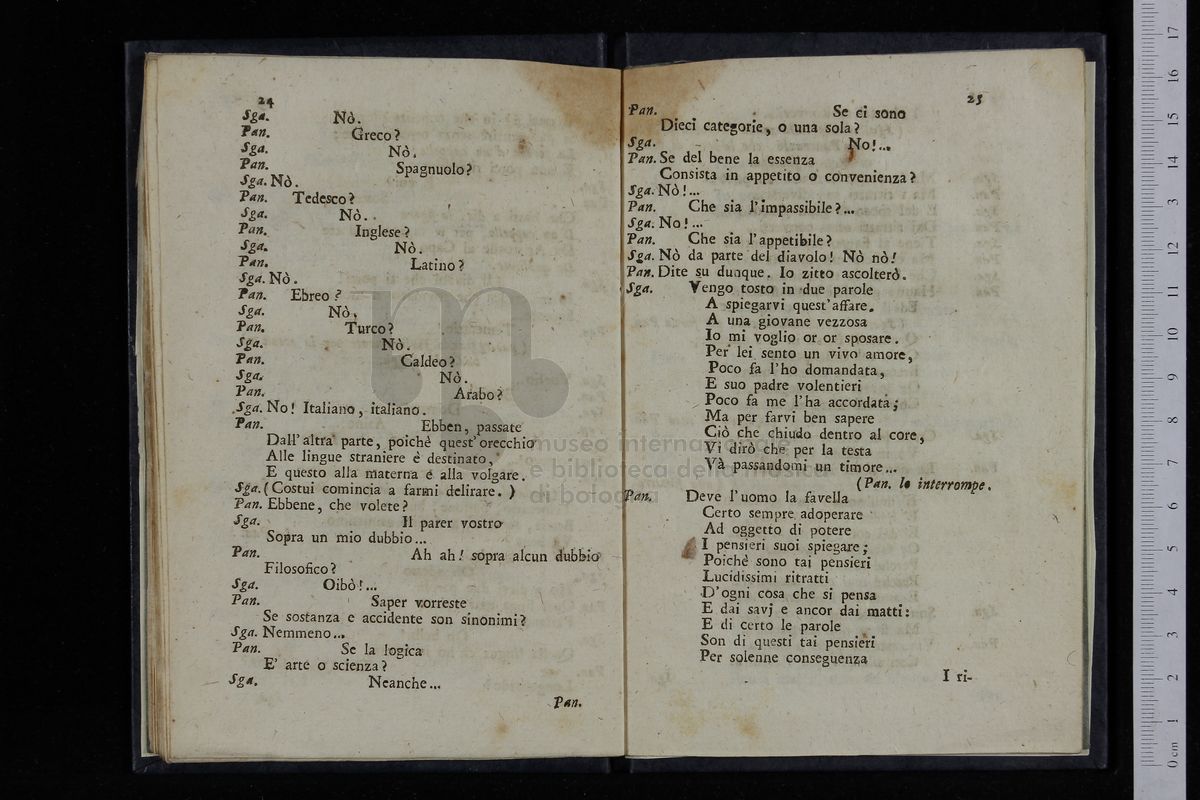 24
Sga. Nò.
Pan. Greco?
Sga. Nò.
Pan. Spagnuolo?
Sga. Nò.
Pan. Tedesco?
Sga. Nò.
Pan. Inglese?
Sga. Nò.
Pan. Latino?
Sga. Nò.
Pan. Ebreo?
Sga. Nò.
Pan. Turco?
Sga. Nò.
Pan. Caldeo?
Sga. Nò.
Pan. Arabo?
Sga. No! Italiano, italiano.
Pan. Ebben, passate
Dall'altra parte, poichè quest'orecchio
Alle lingue straniere è destinato,
E questo alla materna e alla volgare.
Sga. (Costui comincia a farmi delirare.)
Pan. Ebbene, che volete?
Sga. Il parer vostro
Sopra un mio dubbio...
Pan. Ah ah! sopra alcun dubbio
Filosofico?
Sga. Oibò!...
Pan. Saper vorreste
Se sostanza e accidente son sinonimi?
Sga. Nemmeno...
Pan. Se la logica
E' arte o scienza?
Sga. Neanche...
Pan.
25
Pan. Se ci sono
Dieci categorie, o una sola?
Sga. No!...
Pan. Se del bene la essenza
Consista in appetito o convenienza?
Sga. Nò!...
Pan. Che sia l'impassibile?...
Sga. No!...
Pan. Che sia l'appetibile?
Sga. Nò da parte del diavolo! Nò nò!
Pan. Dite su dunque. Io zitto ascolterò.
Sga. Vengo tosto in due parole
A spiegarvi quest'affare.
A una giovane vezzosa
Io mi voglio or or sposare.
Per lei sento un vivo amore,
Poco fa l'ho domandata,
E suo padre volentieri
Poco fa me l'ha accordata;
Ma per farvi ben sapere
Ciò che chiudo dentro al core,
Vi dirò che per la testa
Và passandomi un timore...
(Pan. lo interrompe.
Pan. Deve l'uomo la favella
Certo sempre adoperare
Ad oggetto di potere
I pensieri suoi spiegare;
Poichè sono tai pensieri
Lucidissimi ritratti
D'ogni cosa che si pensa
E dai savj e ancor dai matti:
E di certo le parole
Son di questi tai pensieri
Per solenne conseguenza
I ri-
museo internazionale
e biblioteca della musica
di bologna
0 cm 1 2 3 4 5 6 7 8 9 10 11 12 13 14 15 16 17